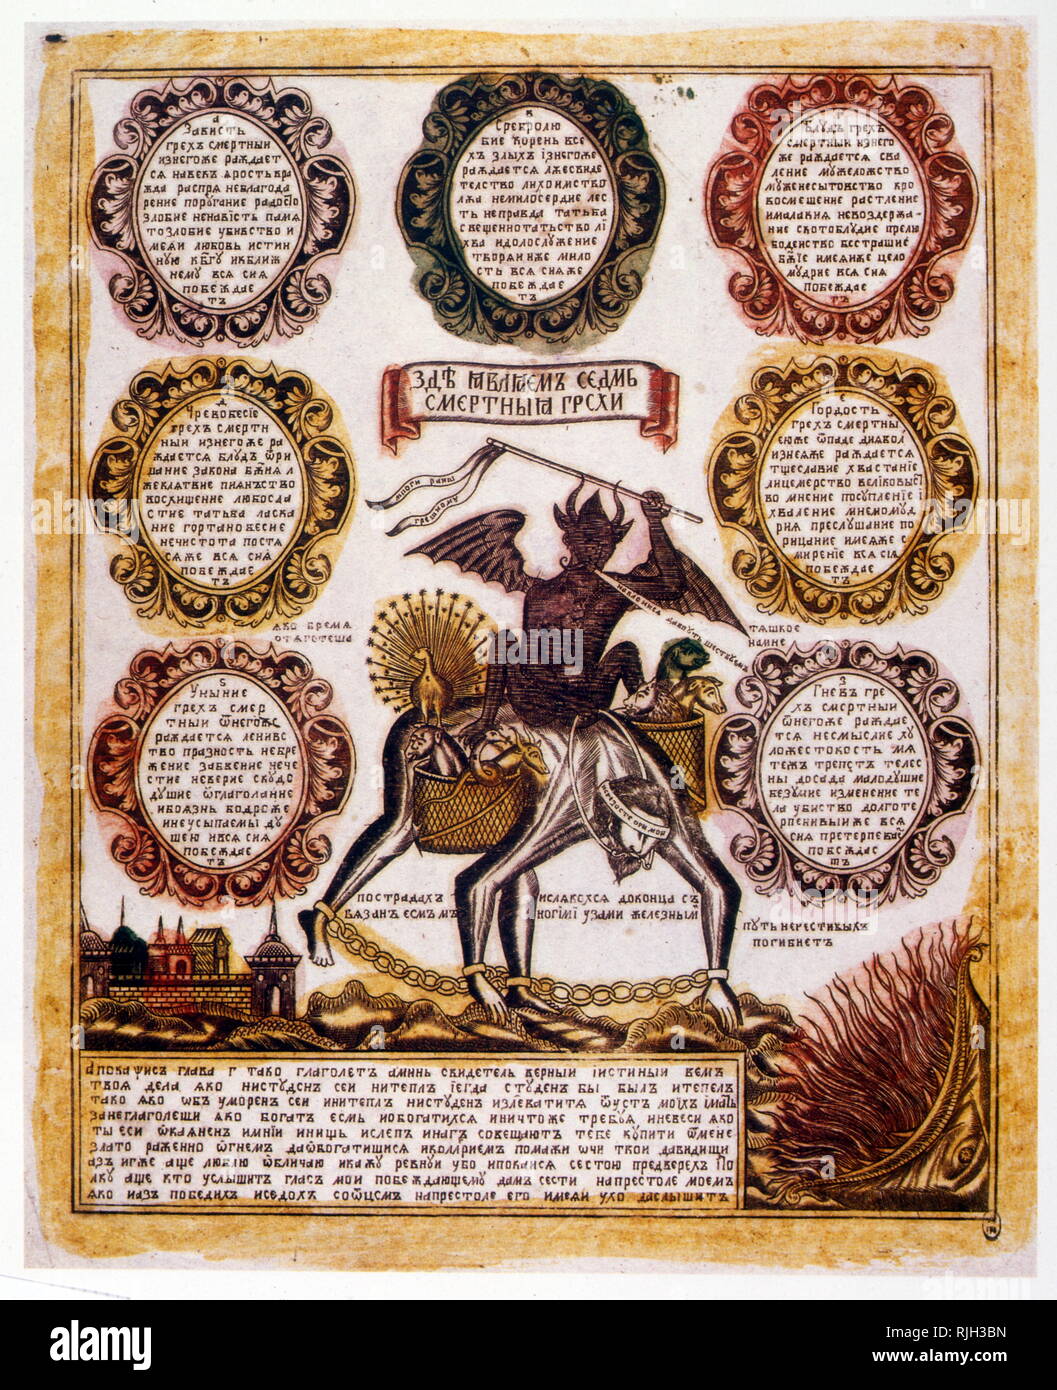 А
Зависть
грехъ смертныи
изнегоже раждает
ся навек ярость вра
жда распря неблагода
рение поругание радосlо
злобие ненавість памя
тозлобие убивство и
меяи любовь истин
ную кбг҃у икближ
нему вся сия
побеждае
тъ
В
Сребролю
бие корень все
хъ злыхъ iзнегоже
раждается лжесвиде
телство лихоимство
лжа немилосердие лес
ть неправда татьба
свещеннотатьство лі
хва идолослужение
творяиже мило
сть вся сияже
побеждае
тъ
Блудъ грехъ
смертныи изнего
же раждается сва
ление мужеложство
муженесытовство кро
восмешение растление
ималакия невоздержа-
ние скотоблудие прелю
бодеиство бестрашие
бж҃ие имеяиже цело
мудрие вся сия
побеждае
тъ
ЗДѢ ЯВЛЯЕМЪ СЕДМЬ
СМЕРТНЫЯ ГРЕХИ
Д
Чревобесіе
грехъ смертн
ныи изнегоже ра
ждается блудъ ѿри
цание закона бж҃ия л
жеклятвие пиянъство
восхищение любосла
стие татьба ласка
ние гортанобесие
нечистота постя
сяже вся сия
побеждае
тъ
Е
Гордость
грехъ смертны
еюже ѿпаде диявол
изнеяже раждается
тщеславие хвастаніе
лицемерство веліковыеі
во мнение посупление і
хваление мнемомуд
рия преслушание по
рицание имеяже с
мирение вся сія
побеждае
тъ
многи раны
грешному
яко бремя
отяготеша
тяшкое
намне
Ѕ
Уныние
грехъ смер
тныи ѿнегожс
раждается ленивс
тво празность небре
жение забвение нече
стие неверие скудо
душие ѿглаголание
ибоязнь бодрсже
инеусыпаемы ду
шею нвся сия
побеждае
тъ
З
Гневъ гре
хъ смертныи
ѿнегоже раждае
тся несмыслие ху
ложестокость мя
тежъ трепетъ телес
ны досада малодушие
безумие изменение те
ла убиство долготе
рпенивыиже вся
сия претерпевай
побеждае
тъ
пострадахъ ислякохся доконца съ
вязанъ есмъ мъногіми узами железным
путь нечестивыхъ
погибнетъ
апокаѱисъ глава г тако глаголетъ аминь свидетель верныи іистиныи вемъ
твоя дела яко нистуденъ сеи нитеплъ іегда студенъ бы былъ итепелъ
тако яко ѡбъ уморенъ сеи инитеплъ нистуденъ излеватитя ѿустъ моіхъ імать
занеглаголеши яко богатъ есмь иобогатихся иничтоже требуя иневеси яко
ты еси ѡкаяненъ имнии инищь ислепъ инагъ совещаютъ тебе купити ѿмене
злато раженно ѡгнемъ даѡбогатишися иколлриемъ помажи ѡчи твои давидищи
азъ игже аще люблю ѡбличаю икажу ревнуи убо ипокаися сестою предверехъ По
лку аще кто услышитъ гласъ мои побеждающему дамъ сести напрестоле моемъ
яко иазъ победихъ иседохъ соѿцемъ напрестоле его имеяи ухо даслышитъ
alamy stock photo
alamy
Image ID: RJH3BN
www.alamy.com